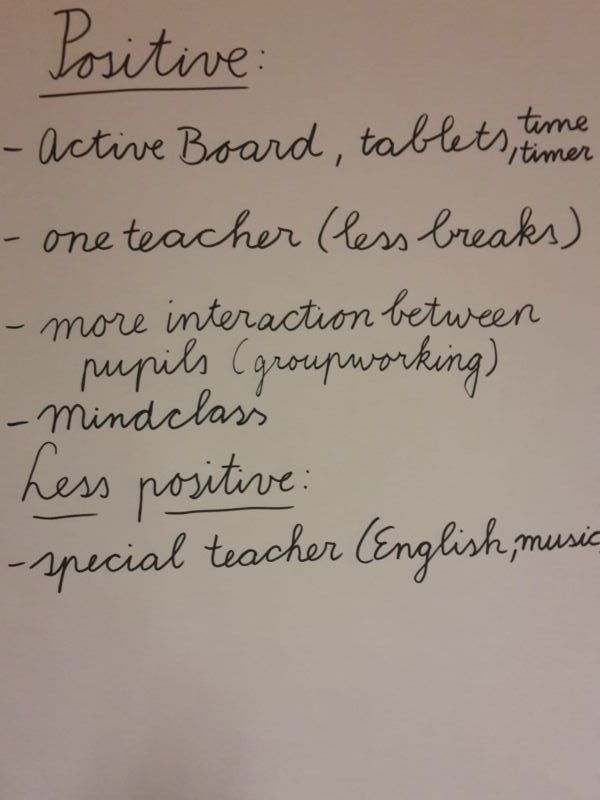 Positive:
- Active Board, tablets, time
, timer
- one teacher (less breaks)
- more interaction between
pupils (groupworking)
- Mindclass
Less positive:
- special teacher (English, music,